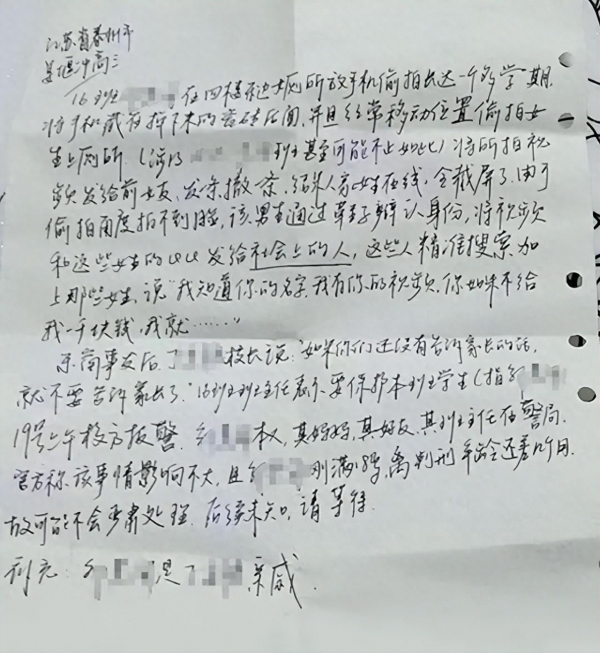 江苏省泰州市
姜堰中高三
16班 在四楼走厕所放手机偷拍长达一个多学期.
将手机藏在掉下来的瓷砖后面,并且经常移动位置偷拍女
生上厕所(涉及 班甚至可能不止如此)将所拍视
频发给前女友、发亲撒亲, 女生在线,全截屏了.由于
偷拍角度拍不到脸,该男生通过鞋子辨认身份,将视频
和这些女生的QQ发给社会上的人,这些人精准搜索加
上那些女生,说“我知道你的名字.我有你的视频.你如果不给
我一千块钱,我就……”
东窗事发后,丁 校长说:“如果你们还没有告诉家长的话,
就不要告诉家长了.”16班班主任表示要保护本班学生(指
19号上午校方报警. 本人,其妈妈,其好友,其班主任在警局.
官方称该事情影响不大,且 刚满 岁,离判刑年龄还差几个月.
故可能不会严肃处理.后续未知,请等待.
补充: 是 亲戚.